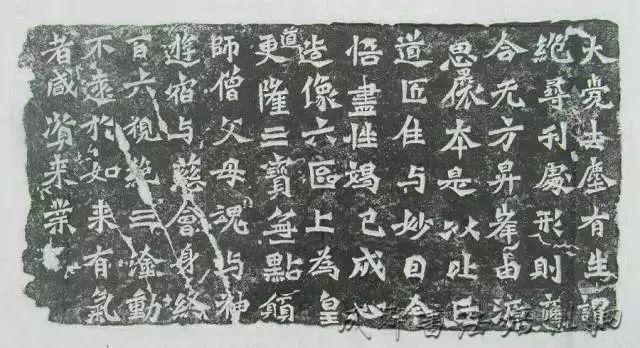 大覺去塵有生謂
絕尋刋處形則
合无方昇峯由源
思攘本是以比丘
道匠住与妙目今
悟盡性竭己成心
造像六區上為皇
道更隆三寶無點願
師僧父母魂与神
遊宿与慈會身終
百六視絕三塗動
不遠於如来有氣
者咸資来業